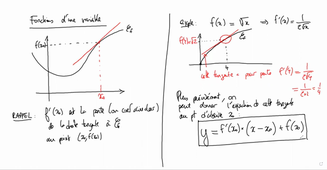 Fonctions d'une variable
f(x₀)
x₀
RAPPEL: f'(x₀) est la pente (ou coef. directeur)
de la droite tangente à
au point (x₀, f(x₀))
f(x) = √x ⇒ f'(x) = 1/(2√x)
4
cette tangente a pour pente f'(4) = 1/(2√4)
= 1/(2×2) = 1/4
Plus précisément, on
peut donner l'équation de cette tangente
au pt d'abscisse x₀:
y = f'(x₀)·(x - x₀) + f(x₀)